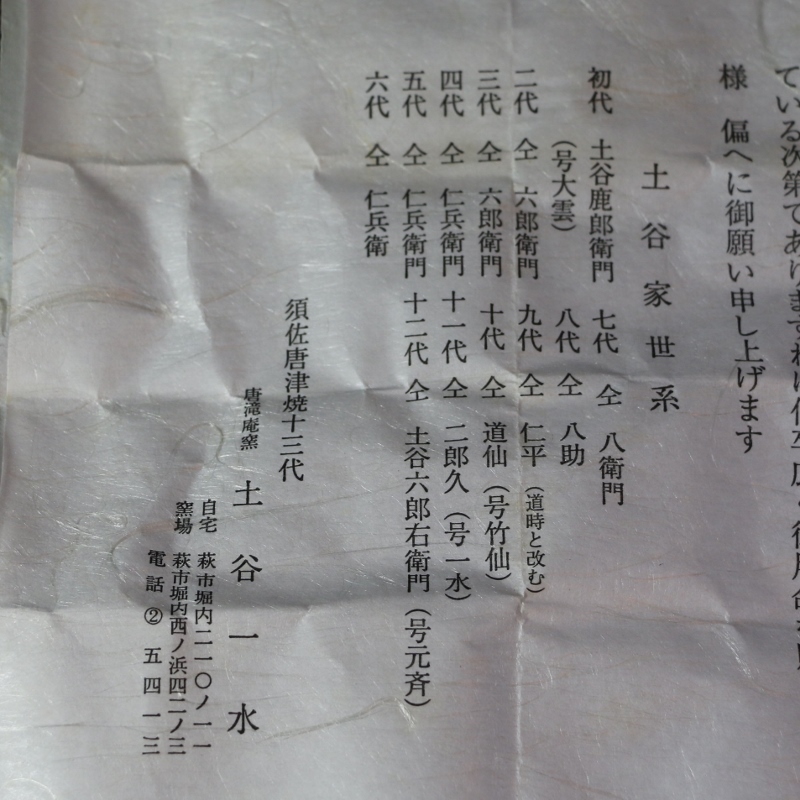 ている次第であります
様 偏へに御願い申し上げます
土谷家世系
初代 土谷鹿郎衛門 七代 仝 八衛門
(号大雲) 八代 仝 八助
二代 仝 六郎衛門 九代 仝 仁平 (道時と改む)
三代 仝 六郎衛門 十代 仝 道仙 (号竹仙)
四代 仝 仁兵衛門 十一代 仝 二郎久 (号一水)
五代 仝 仁兵衛門 十二代 仝 土谷六郎右衛門 (号元斉)
六代 仝 仁兵衛
須佐唐津焼十三代
唐滝庵窯 土谷一水
自宅 萩市堀内二一〇ノ一一
窯場 萩市堀内西ノ浜四二ノ三
電話 ② 五四一三